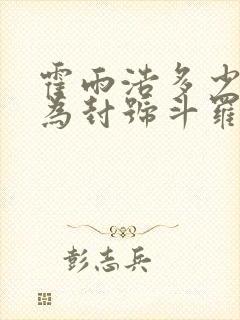 霍雨浩多少
為封號斗羅
彭志兵